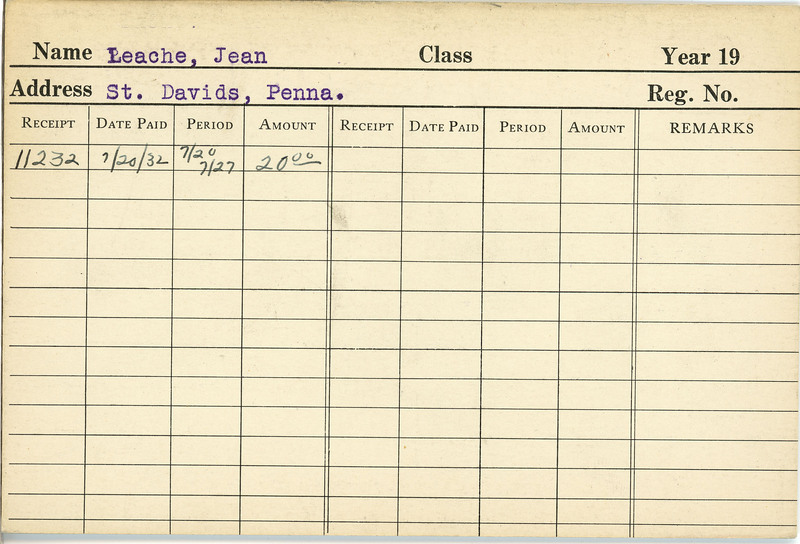 Name Leache, Jean Class Year 19
Address St. Davids, Penna. Reg. No.
RECEIPT DATE PAID PERIOD AMOUNT RECEIPT DATE PAID PERIOD AMOUNT REMARKS
11232 7/20/32 7/20 7/27 20⁰⁰